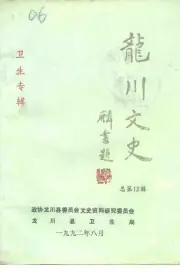 06
卫生专辑
龍川文史
总第12辑
政协龙川县委员会文史资料研究委员会
龙川县卫生局
一九九二年八月